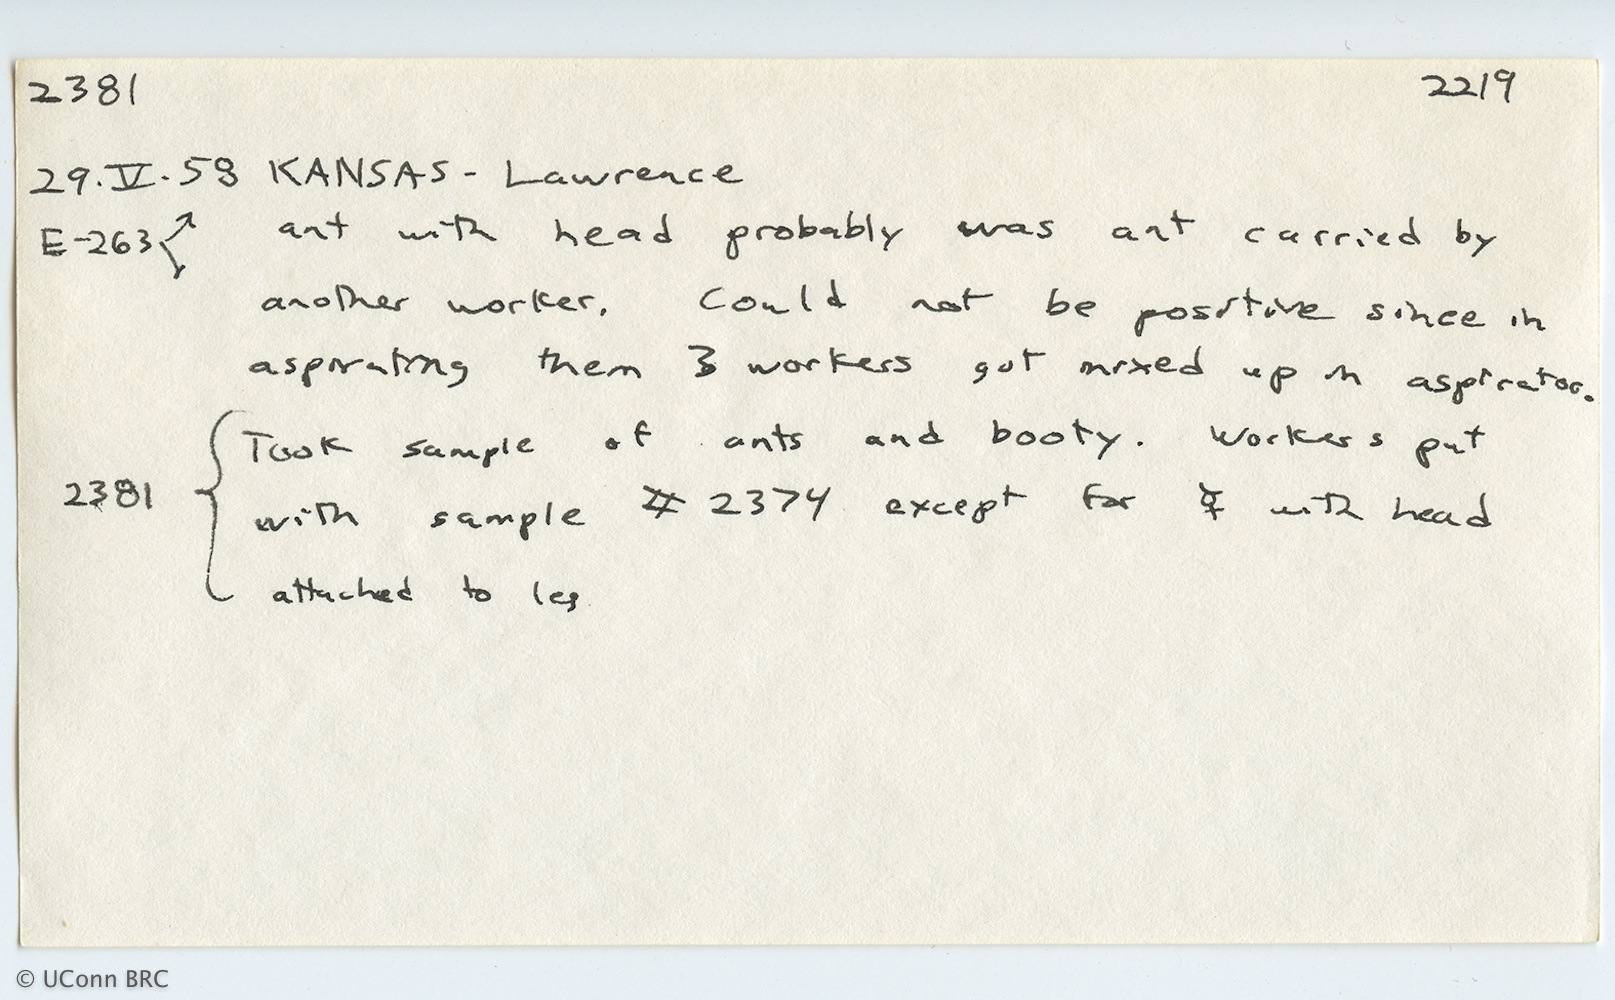 2381 2219
29.V.58 KANSAS - Lawrence
E-263 ant with head probably was ant carried by
another worker. Could not be positive since in
aspirating them 3 workers got mixed up in aspirator.
Took sample of ants and booty. Workers put
2381 with sample # 2374 except for ☿ with head
attached to leg
© UConn BRC